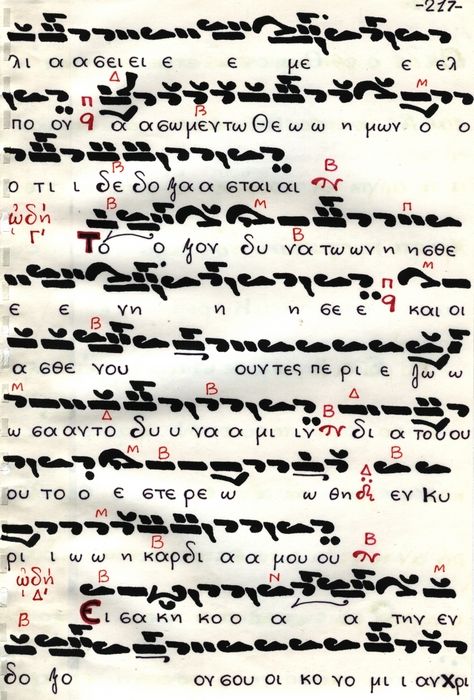 -217-
λι α α σει ει ε ε με ε ελ
Δ Π Β Μ
πο ον ᾳ α α σω μεν τω Θε ω ω η μων ο ο
Β Β
ο τι ι δε δο ξα α σται αι
ὠδή Γ' Β Μ Β Π
Το ο ξον δυ να τω ων η η σθε
Π Μ
ε ε νη η η σε ε και οι
Β
α σθε νου ουν τες πε ρι ε ζω ω
Μ Δ Β Β Δ
ω σα αν το δυ υ να α μι ιν δι α του ου
Μ Β Δ Β
ου το ο ε στε ρε ω ω θη εν Κυ
Μ Β Β
ρι ι ω ω η καρ δι α α μου ου
ὠδή Δ' Β Ν Μ
Ει σα κη κο ο α α την εν
Β
δο ξο ον σου οι κο νο μι ι αν Χρι